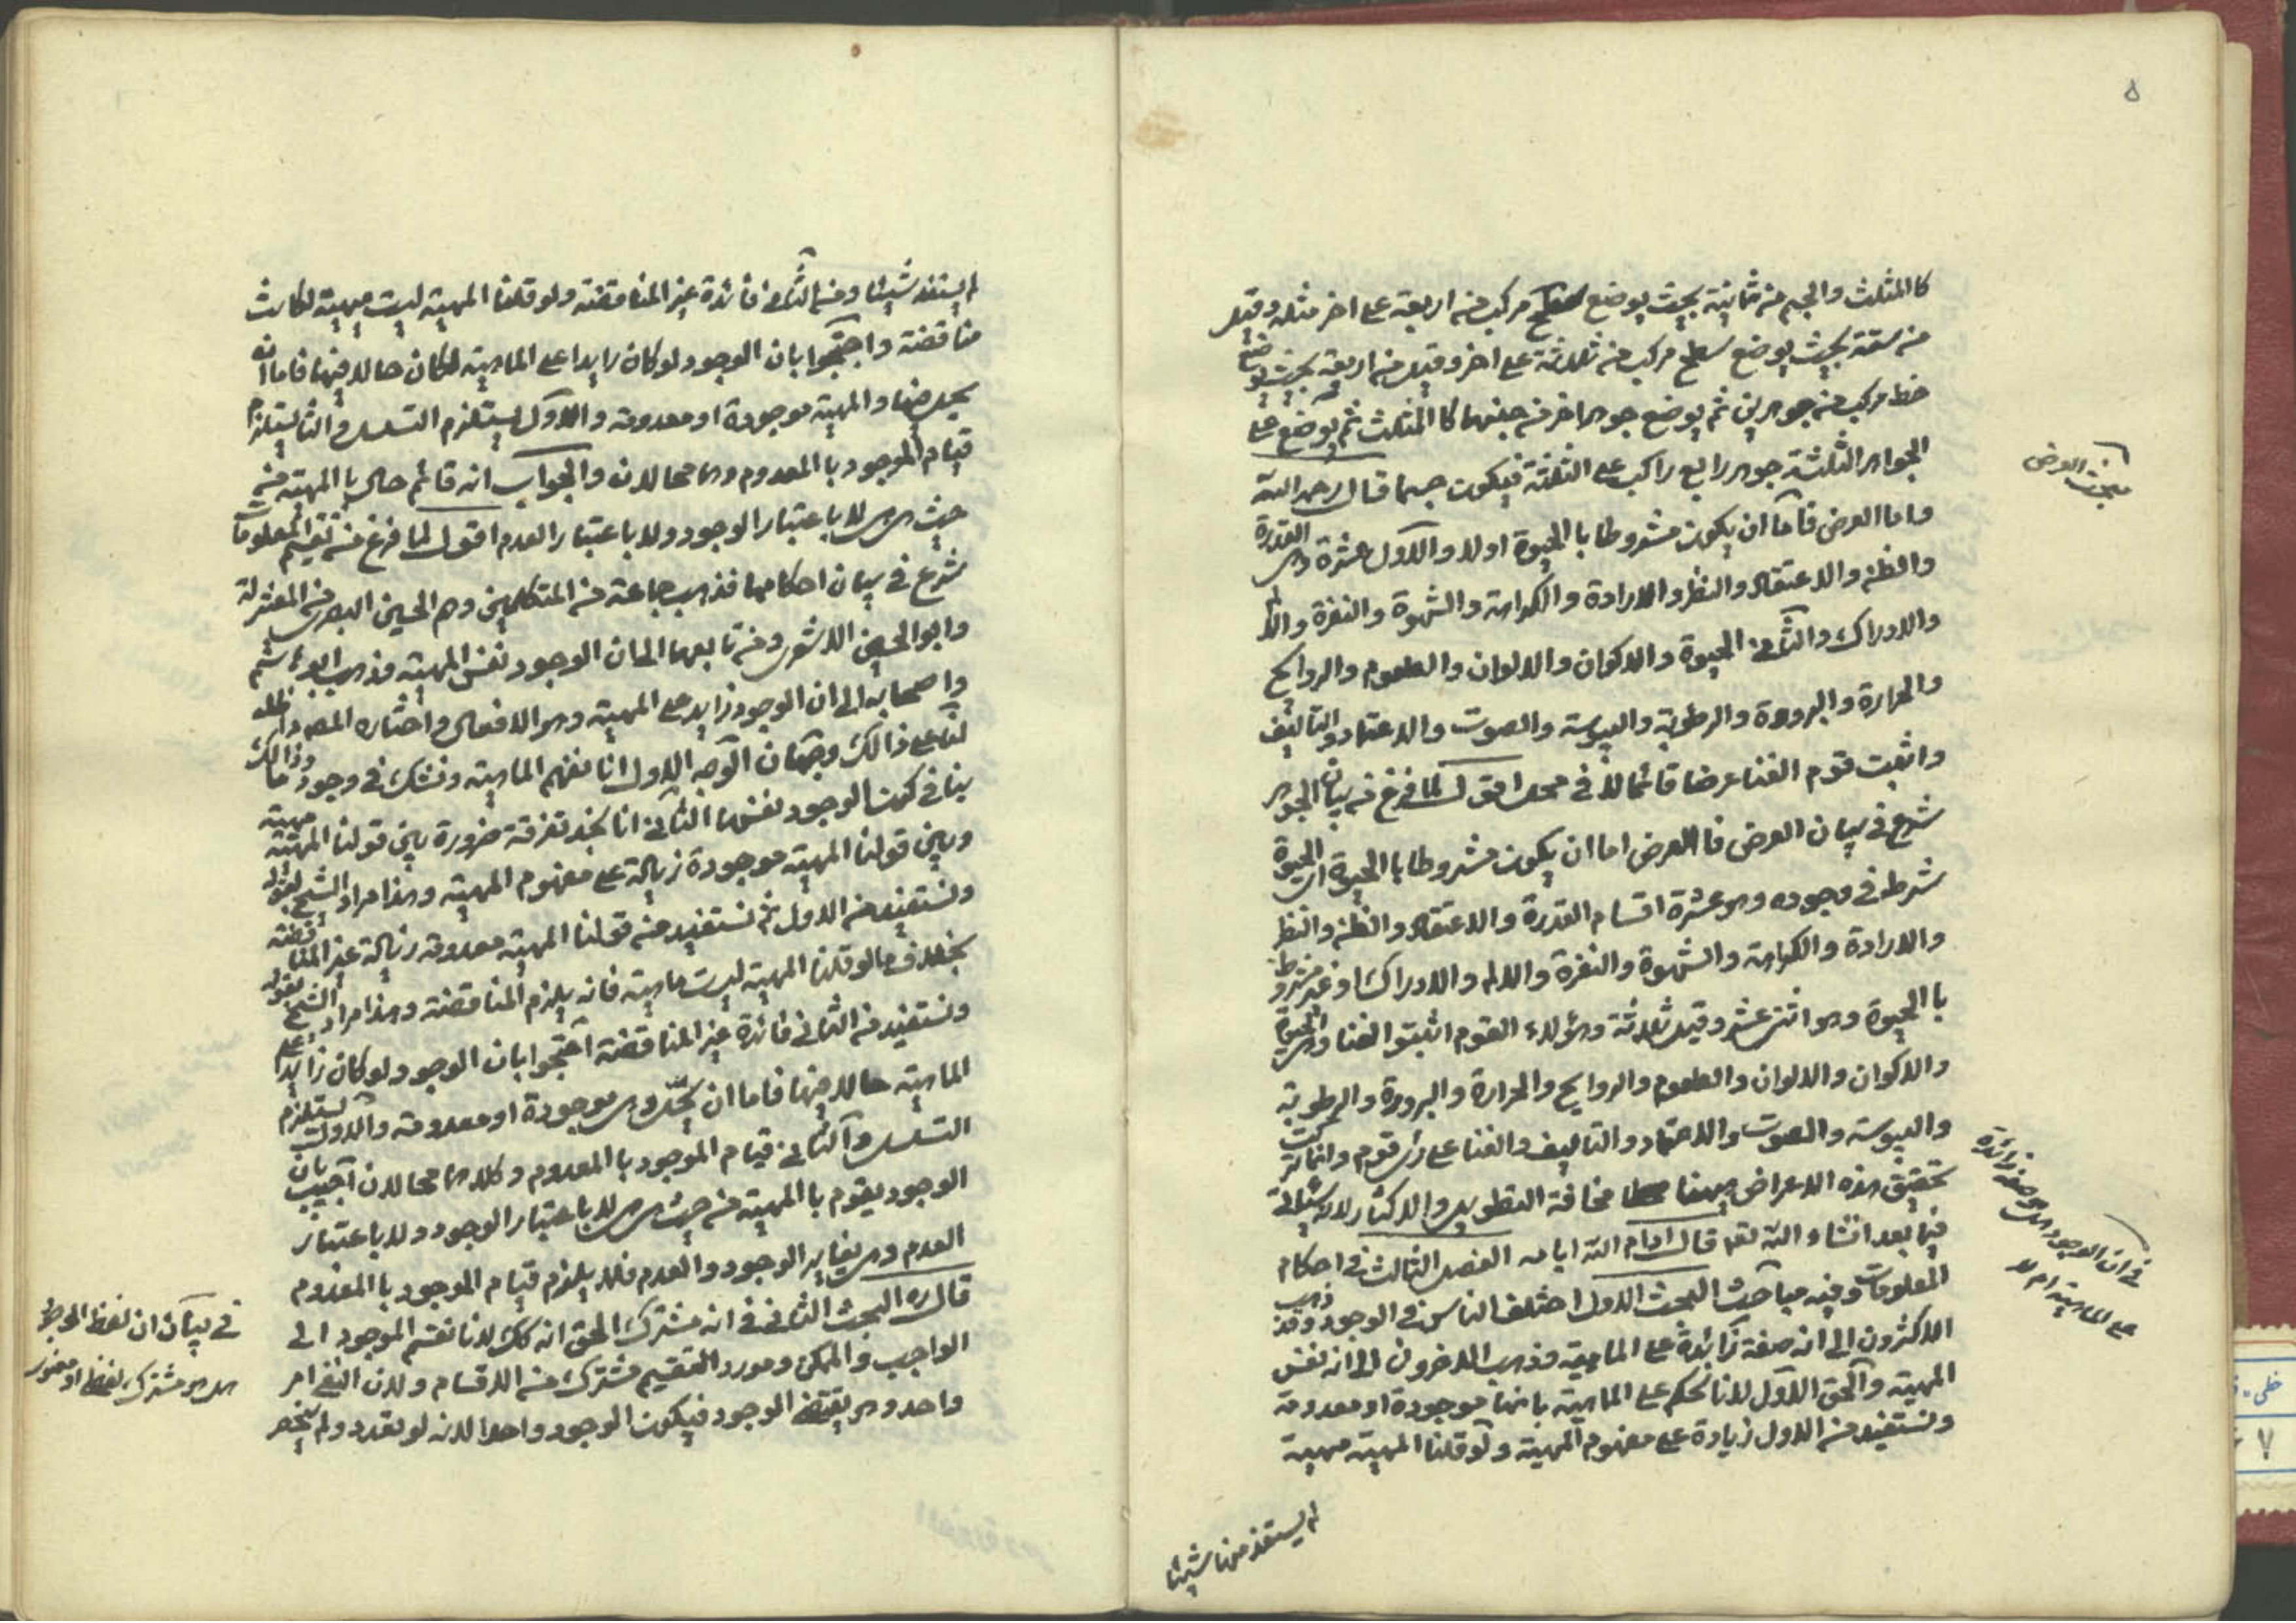 ٥
كا المثلث والجسم من ثمانية بحيث يوضع سطح مركب من اربعة على اخر مثله وقيل
من ستة بحيث يوضع سطح مركب من ثلاثة على اخر وقيل من اربعة بحيث يوضع
خط مركب من جوهرين ثم يوضع جوهر اخر من جنبهما كا المثلث ثم يوضع على
الجواهر الثلثة جوهر رابع راكب على الثلثة فيكون جسما قال رحمه الله
مبحث العرض
واما العرض فاما ان يكون مشروطا با الحيوة اولا والاول عشرة وهى القدرة
والظن والاعتقاد والنظر والارادة والكراهة والشهوة والنفرة والالم
والادراك والثانى الحيوة والاكوان والالوان والطعوم والروايح
والحرارة والبرودة والرطوبة واليبوسة والصوت والاعتماد والتاليف
واثبت قوم الفنا عرضا قائما لا فى محل اقول لما فرغ من بيان الجوهر
شرع فى بيان العرض فا العرض اما ان يكون مشروطا با الحيوة اى الحيوة
شرط فى وجوده وهو عشرة اقسام القدرة والاعتقاد والظن والنظر
والارادة والكراهة والشهوة والنفرة والالم والادراك او غير مشروط
با الحيوة وهو اثنى عشر وقيل ثلاثة وهؤلاء القوم اثبتوا الفنا وهى الحيوة
والاكوان والالوان والطعوم والروايح والحرارة والبرودة والرطوبة
واليبوسة والصوت والاعتماد والتاليف والفنا على رأى قوم وانما تركت
تحقيق هذه الاعراض ههنا مخافة التطويل والاكثار لانه سيأتى
فيما بعد انشاء الله تعالى قال ادام الله ايامه الفصل الثالث فى احكام
المعلومات وفيه مباحث البحث الاول اختلف الناس فى الوجود وقد ذهب
الاكثرون الى انه صفة زائدة على الماهية وذهب الاخرون الى انه نفس
المهية والحق الاول لانا نحكم على الماهية بانها موجودة او معدومة
ونستفيد من الاول زيادة على مفهوم المهية ولو قلنا المهية مهية
فى ان الوجود هل هو صفة زائدة
على الماهية ام لا
لم يستفد منها شيئا
لم يستفد شيئا ومن الثانى فائدة غير المناقضة ولو قلنا المهية ليست مهية لكانت
مناقضة واحتجوا بان الوجود لو كان زايدا على الماهية لكان حالا فيها فاما ان
يحل فيها والمهية موجودة او معدومة والاول يستلزم التسلسل والثانى يستلزم
قيام الموجود با المعدوم وهما محالان والجواب انه قائم حال با المهية من
حيث هى هى لا باعتبار الوجود ولا باعتبار العدم اقول لما فرغ من تقسيم المعلومات
شرع فى بيان احكامها فذهب جماعة من المتكلمين وهم الحسين البصرى من المعتزلة
وابو الحسين الاشعرى ومن تابعهما الى ان الوجود نفس المهية وذهب ابو هاشم
واصحابه الى ان الوجود زايد على المهية وهو الافعال واختاره المص دام ظله
لنا على ذالك وجهان الوجه الاول انا نفهم الماهية ونشك فى وجودها وذالك
ينافى كون الوجود نفسها الثانى انا نجد تفرقة ضرورة بين قولنا المهية مهية
وبين قولنا المهية موجودة زيادة على مفهوم المهية وهذا مراد الشيخ بقوله
ونستفيد من الاول ثم نستفيد من قولنا المهية معدومة زيادة غير المناقضة
بخلاف ما لو قلنا المهية ليست ماهية فانه يلزم المناقضة وهذا مراد الشيخ بقوله
ونستفيد من الثانى فائدة غير المناقضة احتجوا بان الوجود لو كان زايدا على
الماهية حالا فيها فاما ان يحل وهى موجودة او معدومة والاول يستلزم
التسلسل والثانى قيام الموجود با المعدوم وكلاهما محالان اجيب بان
الوجود يقوم با المهية من حيث هى هى لا باعتبار الوجود ولا باعتبار
العدم وهى يغاير الوجود والعدم فلا يلزم قيام الموجود با المعدوم
قال ره البحث الثانى فى انه مشترك الحق انه كك لانا نقسم الموجود الى
الواجب والممكن ومورد التقسيم مشترك من الاقسام ولان النفى امر
واحد وهو يقتضى الوجود فيكون الوجود واحدا لانه لو تعدد ولم ينحصر
فى بيان ان لفظ الوجود
هل هو مشترك لفظى او معنوى